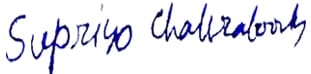 Supriyo Chakraborty